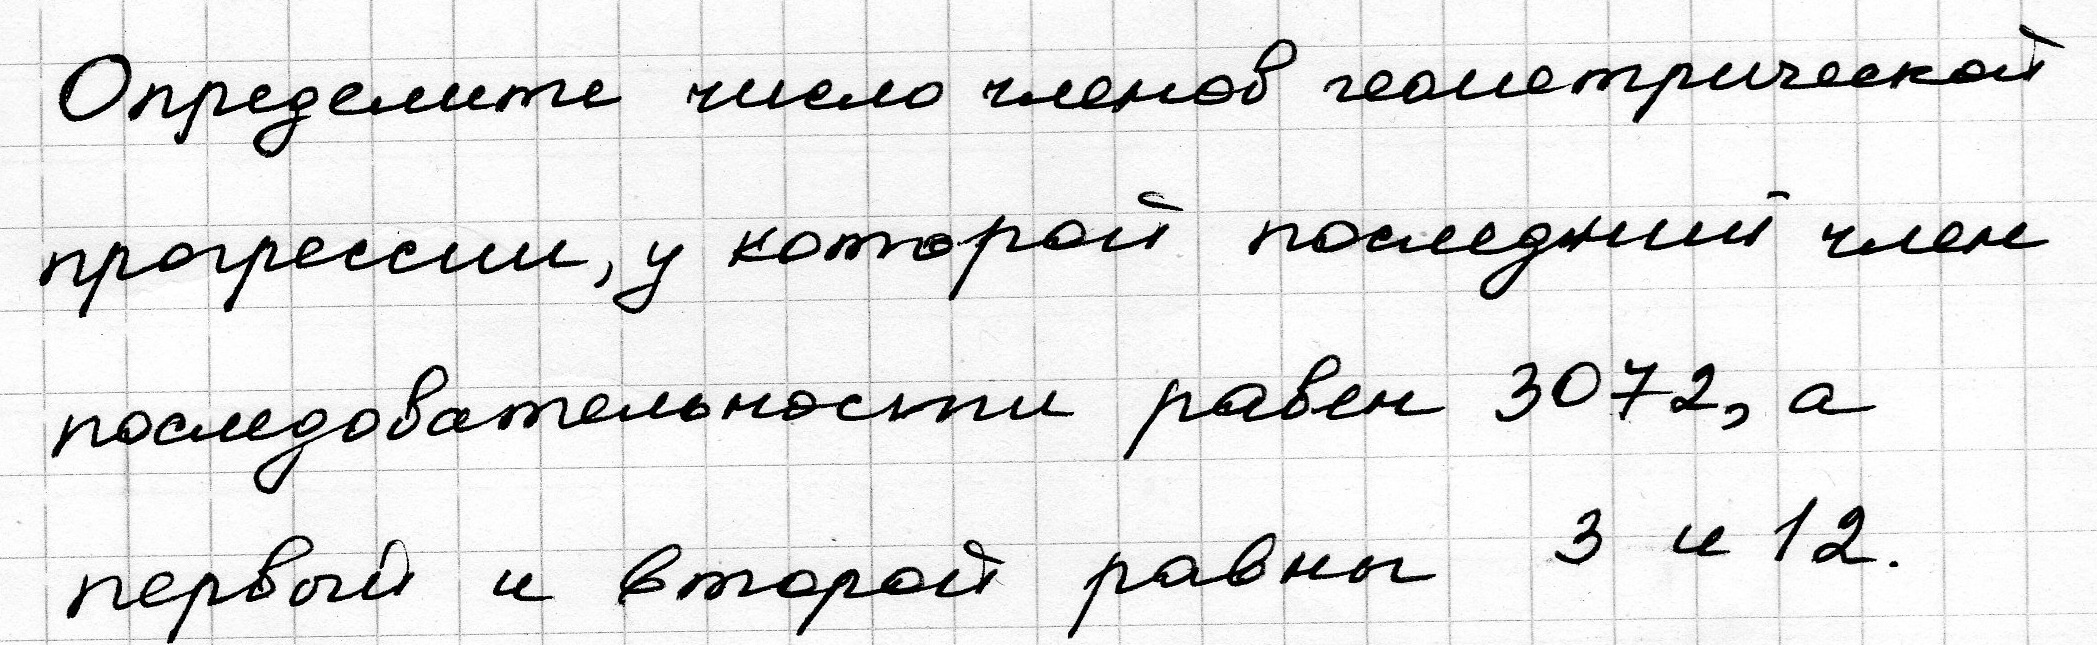 Определите число членов геометрической
прогрессии, у которой последний член
последовательности равен 3072, а
первый и второй равны 3 и 12.